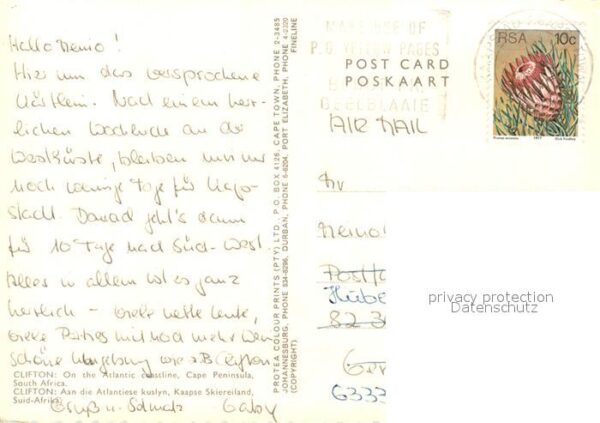 Hallo Meino!
Hier nun das versprochene
Kärtlein. Nach einem herr-
lichen Wochende an der
Westküste, bleiben mir nur
noch wenige Tage für Kap-
stadt. Danach geht's dann
für 10 Tage nach Süd-West.
Alles in allem ist es ganz
herrlich - viele nette Leute,
viele Parties und noch mehr
schöne Umgebung wie z.B. Clifton
CLIFTON: On the Atlantic coastline, Cape Peninsula,
South Africa.
CLIFTON: Aan die Atlantiese kuslyn, Kaapse Skiereiland,
Suid-Afrika.
Gruß u. Schmatz Gaby
PROTEA COLOUR PRINTS (PTY) LTD., P.O. BOX 4126, CAPE TOWN, PHONE 2-3485
JOHANNESBURG, PHONE 834-8296, DURBAN, PHONE 6-8204, PORT ELIZABETH, PHONE 4-2320
(COPYRIGHT) FINELINE
MAKE USE OF
P.O. YELLOW PAGES
POST CARD
POSKAART
AIR MAIL
RSA 10c
1977
Meino
82
6333
privacy protection
Datenschutz